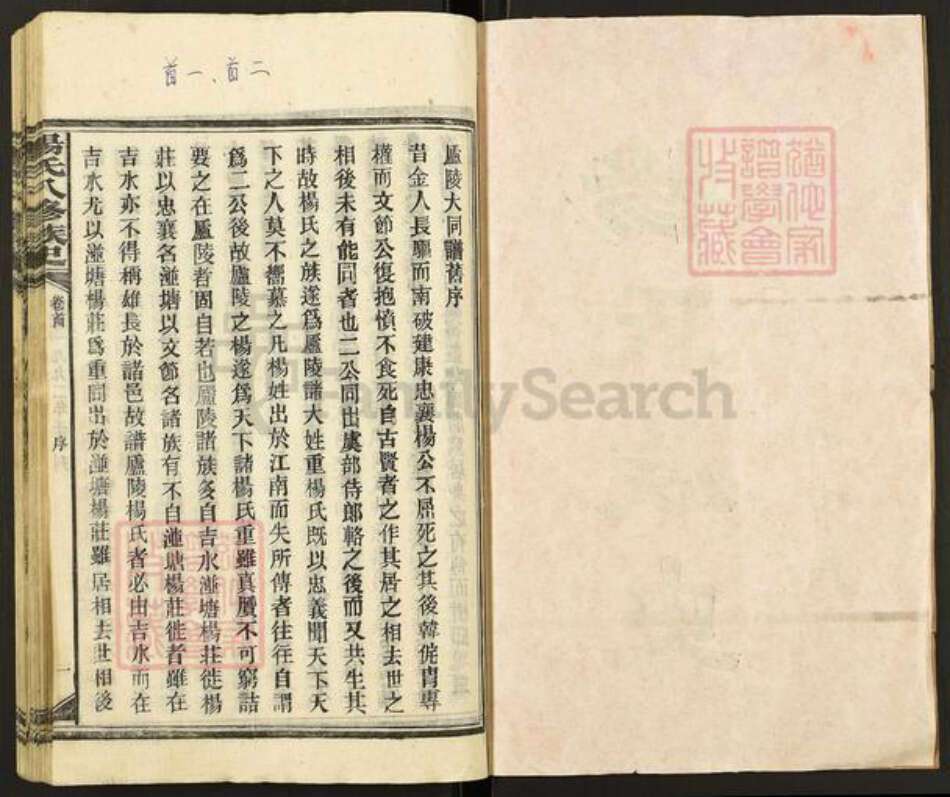 猶他家
譜學會
收藏
首一、首二
廬陵大同譜舊序
昔金人長驅而南破建康忠襄楊公不屈死之其後韓侂胄專
權而文節公復抱憤不食死自古賢者之作其居之相去世之
相後未有能同者也二公同出虞部侍郎輅之後而又共生其
時故楊氏之族遂爲廬陵諸大姓重楊氏既以忠義聞天下天
下之人莫不嚮慕之凡楊姓出於江南而失所傳者往往自謂
爲二公後故廬陵之楊遂爲天下諸楊氏重雖真贋不可窮詰
要之在廬陵者固自若也廬陵諸族多自吉水湴塘楊莊徙楊
莊以忠襄名湴塘以文節名諸族有不自湴塘楊莊徙者雖在
吉水亦不得稱雄長於諸邑故譜廬陵楊氏者必由吉水而在
吉水尤以湴塘楊莊爲重同出於湴塘楊莊雖居相去世相後
楊氏八修族史
卷首
序
一
FamilySearch